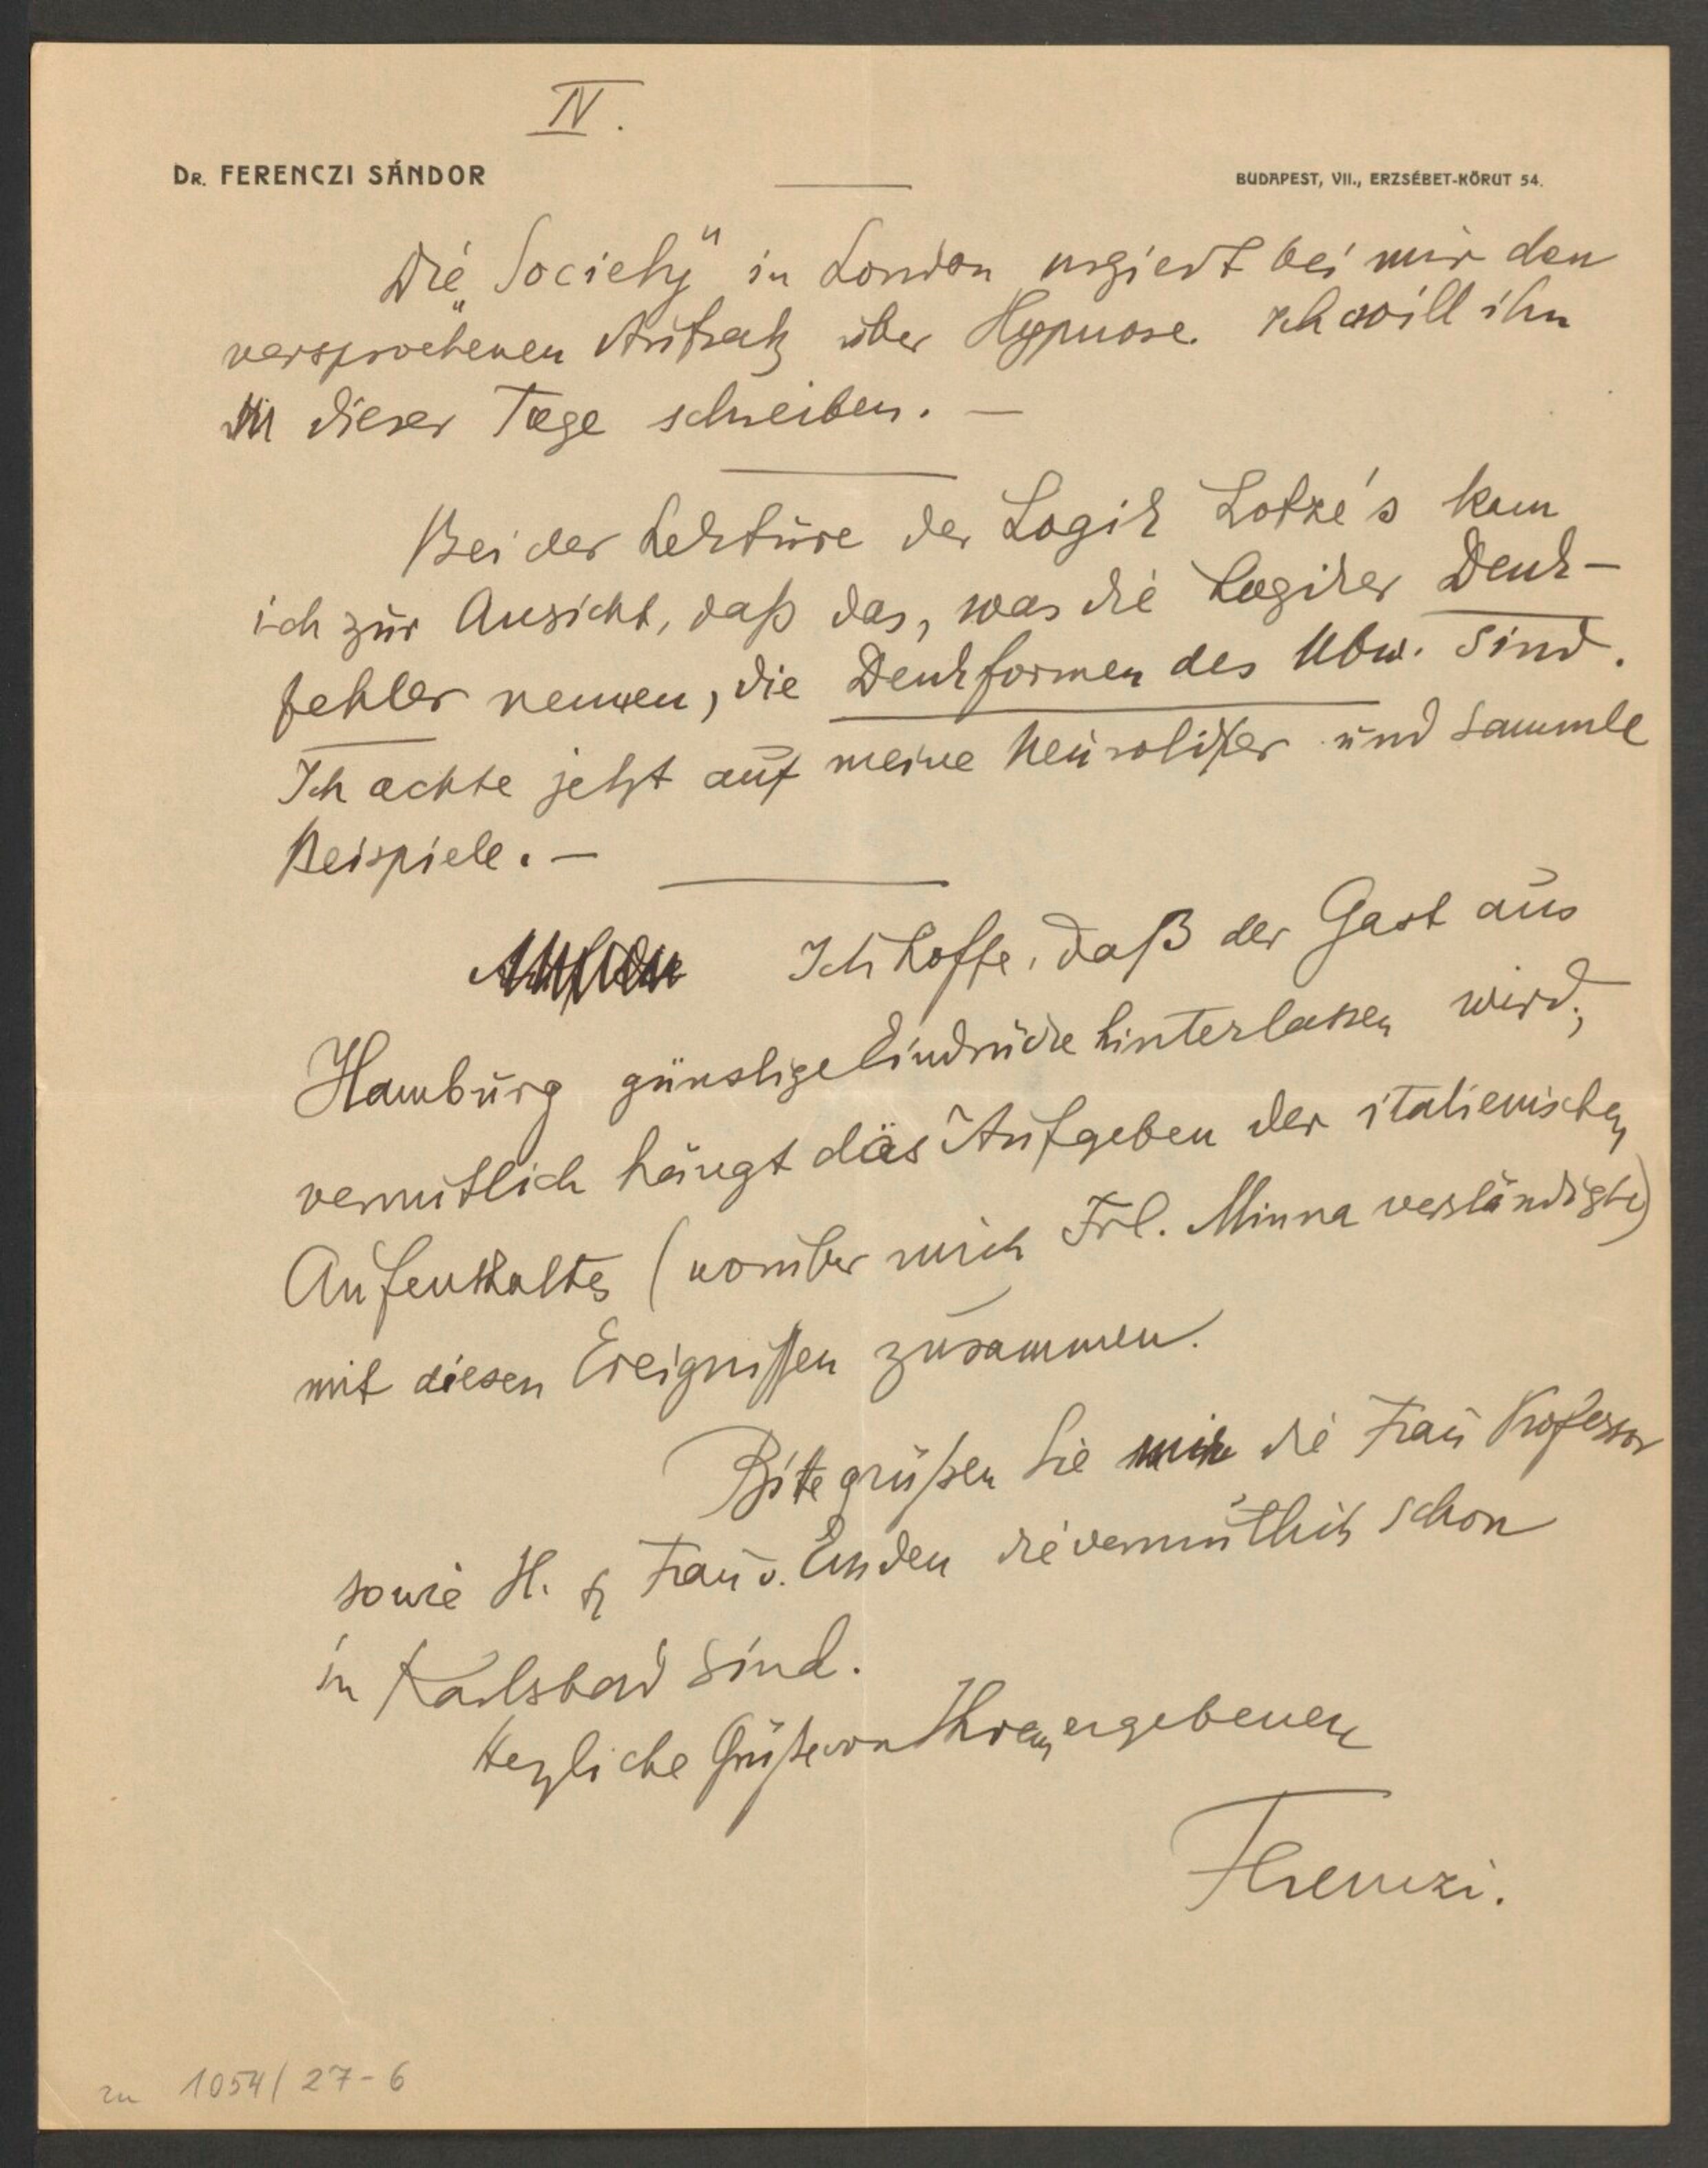 IV.
DR. FERENCZI SÁNDOR
BUDAPEST, VII., ERZSÉBET-KÖRUT 54.
Die „Society" in London urgiert bei mir den
versprochenen Aufsatz über Hypnose. Ich will ihn
dieser Tage schreiben. —
Bei der Lektüre der Logik Lotze's kam
ich zur Ansicht, daß das, was die Logiker Denk-
fehler nennen, die Denkformen des Ubw. sind.
Ich achte jetzt auf meine Neurotiker und sammle
Beispiele. —
Ich hoffe, daß der Gast aus
Hamburg günstige Eindrücke hinterlassen wird;
vermutlich hängt das Aufgeben der italienischen
Aufenthaltes (worüber mich Frl. Minna verständigte)
mit diesen Ereignissen zusammen.
Bitte grüßen Sie die Frau Professor
sowie H. & Frau v. Emden die vermuthlich schon
in Karlsbad sind.
Herzliche Grüße von Ihrem ergebenen
Ferenczi.
zu 1054/27-6